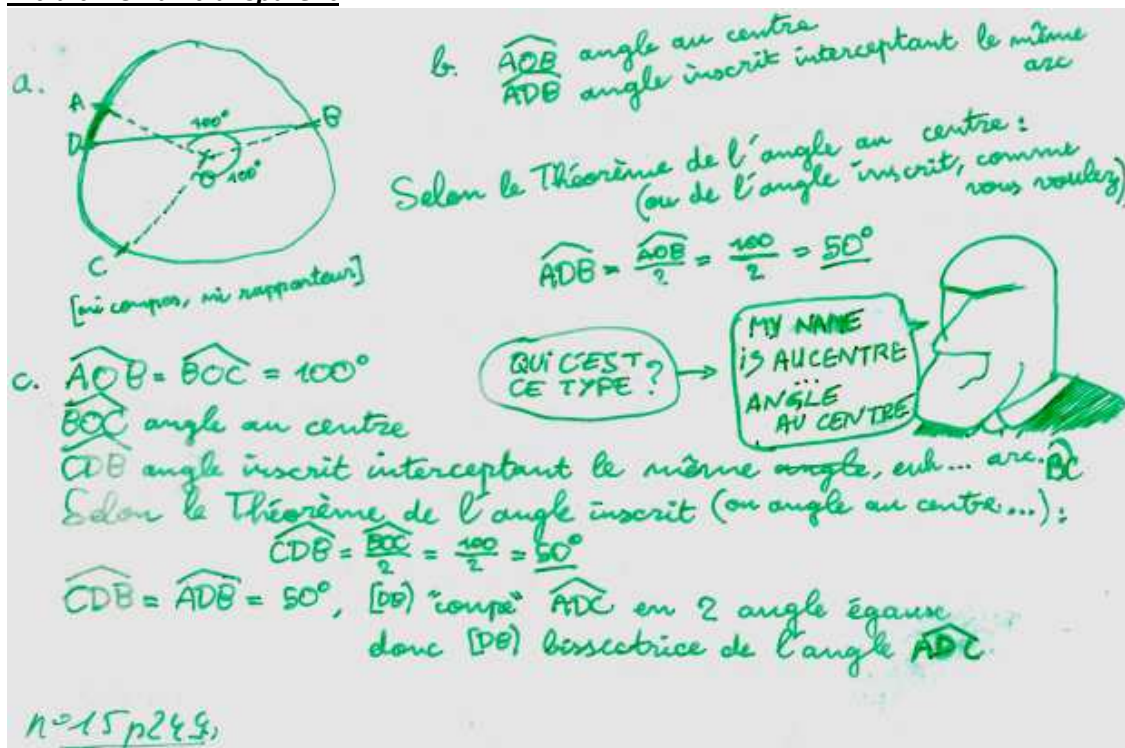 a.
A
D
B
C
O
100°
100°
[ni compas, ni rapporteur]
b. AOB angle au centre
ADB angle inscrit interceptant le même
arc
Selon le Théorème de l'angle au centre :
(ou de l'angle inscrit, comme
vous voulez)
ADB = AOB/2 = 100/2 = 50°
QUI C'EST
CE TYPE ?
MY NAME
iS AUCENTRE
...
ANGLE
AU CENTRE
c. AOB = BOC = 100°
BOC angle au centre
CDB angle inscrit interceptant le même angle, euh... arc. BC
Selon le Théorème de l'angle inscrit (ou angle au centre...) :
CDB = BOC/2 = 100/2 = 50°
CDB = ADB = 50°, [DB) "coupe" ADC en 2 angle égaux
donc [DB) bissectrice de l'angle ADC
n°15 p249,